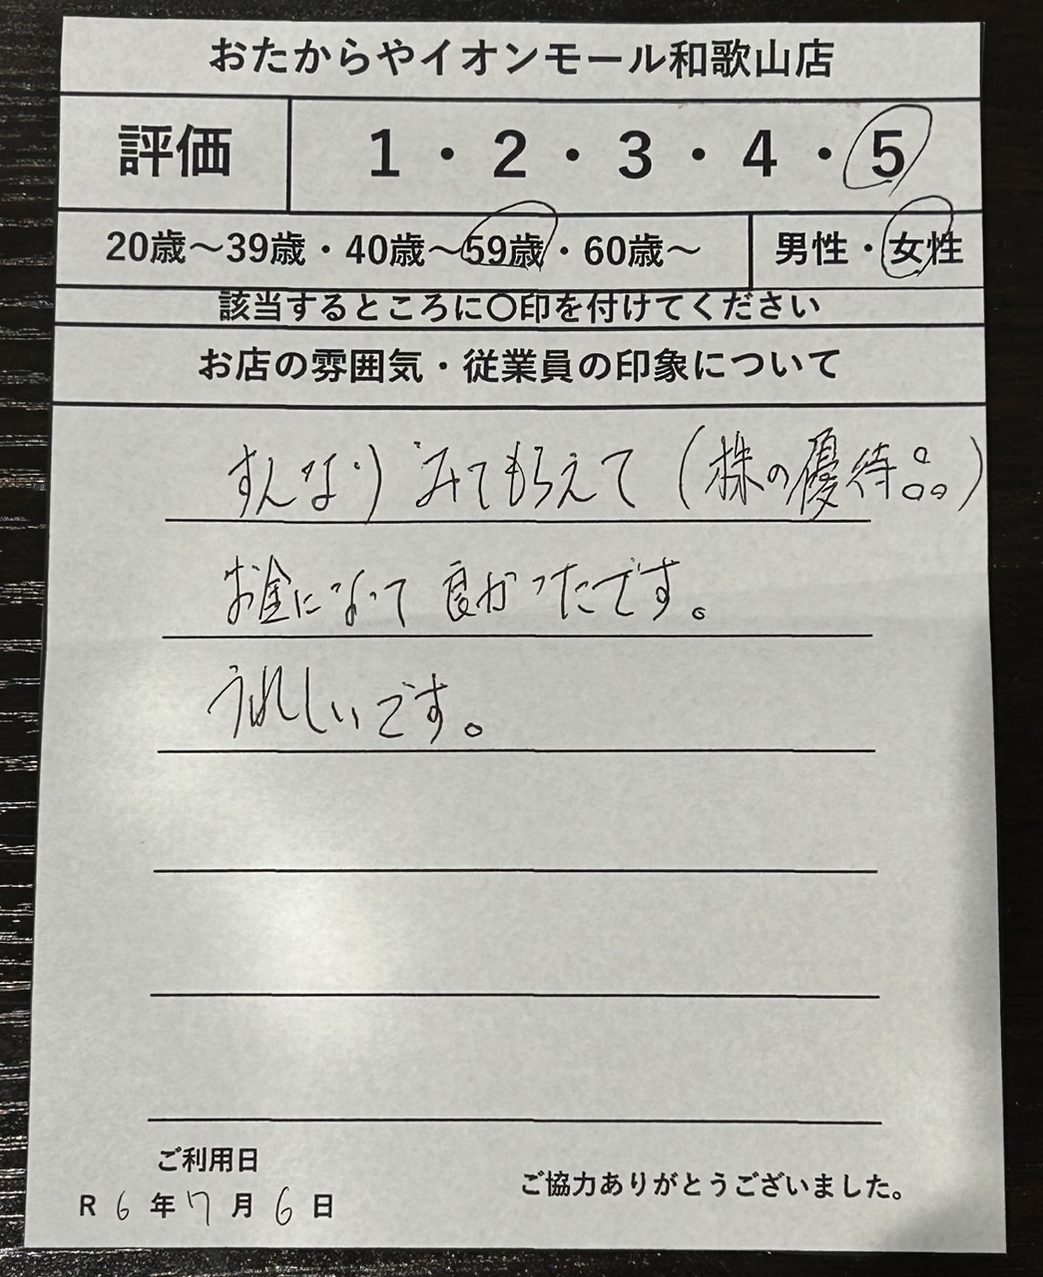 おたからやイオンモール和歌山店
評価 1・2・3・4・5
20歳～39歳・40歳～59歳・60歳～ 男性・女性
該当するところに〇印を付けてください
お店の雰囲気・従業員の印象について
すんなりみてもらえて(株の優待品)
お金になって良かったです。
うれしいです。
ご利用日
R 6 年 7 月 6 日
ご協力ありがとうございました。